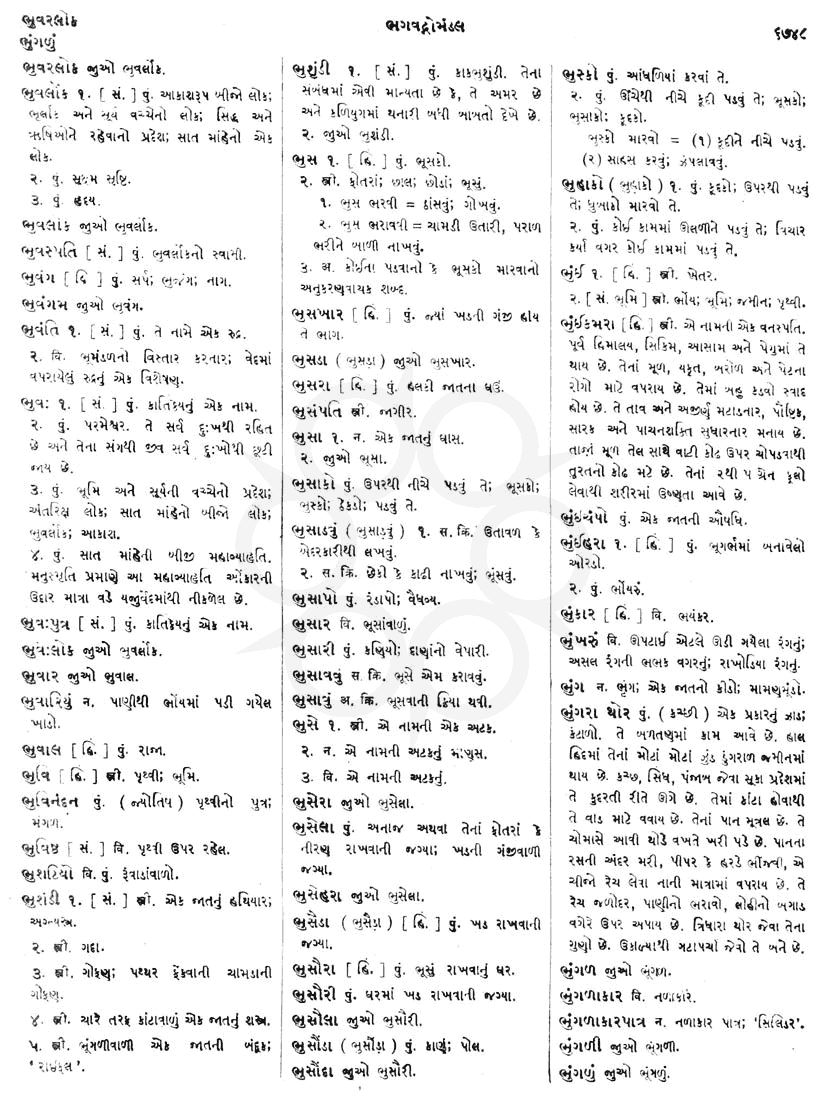 ભુવરલોક
ભુંગળું
ભગવદ્ગોમંડલ
૬૭૪૮
ભુવરલોક જુઓ ભુવર્લોક.
ભુવર્લોક ૧. [ સં. ] પું. આકાશરૂપ બીજો લોક;
ભૂર્લોક અને સૂર્ય વચ્ચેનો લોક; સિદ્ધ અને
ઋષિઓને રહેવાનો પ્રદેશ; સાત માંહેનો એક
લોક.
૨. પું. સૂક્ષ્મ સૃષ્ટિ.
૩. પું. હૃદય.
ભુવર્લોક જુઓ ભુવર્લોક.
ભુવસ્પતિ [ સં. ] પું. ભુવર્લોકનો સ્વામી.
ભુવંગ [ હિં ] પું. સર્પ; ભુજંગ; નાગ.
ભુવંગમ જુઓ ભુવંગ.
ભુવંતિ ૧. [ સં. ] પું. તે નામે એક રુદ્ર.
૨. વિ. ભૂમંડળનો વિસ્તાર કરનાર; વેદમાં
વપરાયેલું રુદ્રનું એક વિશેષણ.
ભુવઃ ૧. [ સં. ] પું. કાર્તિકેયનું એક નામ.
૨. પું. પરમેશ્વર. તે સર્વ દુઃખથી રહિત
છે અને તેના સંગથી જીવ સર્વ દુઃખોથી છૂટી
જાય છે.
૩. પું. ભૂમિ અને સૂર્યની વચ્ચેનો પ્રદેશ;
અંતરિક્ષ લોક; સાત માંહેનો બીજો લોક;
ભુવર્લોક; આકાશ.
૪. પું. સાત માંહેની બીજી મહાવ્યાહૃતિ.
મનુસ્મૃતિ પ્રમાણે આ મહાવ્યાહૃતિ ઓંકારની
ઉકાર માત્રા વડે યજુર્વેદમાંથી નીકળેલ છે.
ભુવઃપુત્ર [ સં. ] પું. કાર્તિકેયનું એક નામ.
ભુવઃલોક જુઓ ભુવર્લોક.
ભુવાર જુઓ ભુવાલ.
ભુવારિયું ન. પાણીથી ભોંયમાં પડી ગયેલ
ખાડો.
ભુવાલ [ હિં. ] પું. રાજા.
ભુવિ [ હિં. ] સ્ત્રી. પૃથ્વી; ભૂમિ.
ભુવિનંદન પું. ( જ્યોતિષ ) પૃથ્વીનો પુત્ર;
મંગળ.
ભુવિષ્ઠ [ સં. ] વિ. પૃથ્વી ઉપર રહેલ.
ભુશટિયો વિ. પું. રૂંવાડાંવાળો.
ભુશંડી ૧. [ સં. ] સ્ત્રી. એક જાતનું હથિયાર;
અગ્ન્યસ્ત્ર.
૨. સ્ત્રી. ગદા.
૩. સ્ત્રી. ગોફણ; પથ્થર ફેંકવાની ચામડાની
ગોફણ.
૪. સ્ત્રી. ચારે તરફ કાંટાવાળું એક જાતનું શસ્ત્ર.
૫. સ્ત્રી. ભૂંગળીવાળી એક જાતની બંદૂક;
‘ રાઈફલ ’.
ભુશુંડી ૧. [ સં. ] પું. કાકભુશુંડી. તેના
સંબંધમાં એવી માન્યતા છે કે, તે અમર છે
અને કળિયુગમાં થનારી બધી બાબતો દેખે છે.
૨. જુઓ ભુશંડી.
ભુસ ૧. [ હિં. ] પું. ભૂસકો.
૨. સ્ત્રી. ફોતરાં; છાલ; છોડાં; ભૂસું.
૧. ભુસ ભરવી = ઠાંસવું; ગોખવું.
૨. ભુસ ભરાવવી = ચામડી ઉતારી, પરાળ
ભરીને બાળી નાખવું.
૩. અ. કોઈના પડવાનો કે ભૂસકો મારવાનો
અનુકરણવાચક શબ્દ.
ભુસખાર [ હિં. ] પું. જ્યાં ખડની ગંજી હોય
તે ભાગ.
ભુસડા ( ભુસડા ) જુઓ ભુસખાર.
ભુસરા [ હિં. ] પું. હલકી જાતના ઘઉં.
ભુસંપતિ સ્ત્રી. જાગીર.
ભુસા ૧. ન. એક જાતનું ઘાસ.
૨. જુઓ ભૂસા.
ભુસાકો પું. ઉપરથી નીચે પડવું તે; ભૂસકો;
ભુસ્કો; ઠેકડો; પડવું તે.
ભુસાડવું ( ભુસાડવું ) ૧. સ. ક્રિ. ઉતાવળ કે
બેદરકારીથી લખવું.
૨. સ. ક્રિ. છેકી કે કાઢી નાખવું; ભૂંસવું.
ભુસાપો પું. રંડાપો; વૈધવ્ય.
ભુસાર વિ. ભૂસાંવાળું.
ભુસારી પું. કણિયો; દાણાંનો વેપારી.
ભુસાવવું સ. ક્રિ. ભૂસે એમ કરાવવું.
ભુસાવું અ. ક્રિ. ભૂસવાની ક્રિયા થવી.
ભુસે ૧. સ્ત્રી. એ નામની એક અટક.
૨. ન. એ નામની અટકનું માણસ.
૩. વિ. એ નામની અટકનું.
ભુસેરા જુઓ ભુસેલા.
ભુસેલા પું. અનાજ અથવા તેનાં ફોતરાં કે
નીરણ રાખવાની જગ્યા; ખડની ગંજીવાળી
જગ્યા.
ભુસેહરા જુઓ ભુસેલા.
ભુસૈડા ( ભુસૈડા ) [ હિં. ] પું. ખડ રાખવાની
જગ્યા.
ભુસૌરા [ હિં. ] પું. ભૂસું રાખવાનું ઘર.
ભુસૌરી પું. ઘરમાં ખડ રાખવાની જગ્યા.
ભુસૌલા જુઓ ભુસૌરી.
ભુસૌંડા ( ભુસૌંડા ) પું. કાણું; પોલ.
ભુસૌંદા જુઓ ભુસૌરી.
ભુસ્કો પું. આંધળિયાં કરવાં તે.
૨. પું. ઊંચેથી નીચે કૂદી પડવું તે; ભૂસકો;
ભુસાકો; કૂદકો.
ભુસ્કો મારવો = (૧) કૂદીને નીચે પડવું.
(૨) સાહસ કરવું; ઝંપલાવવું.
ભુહાકો ( ભુહાકો ) ૧. પું. કૂદકો; ઉપરથી પડવું
તે; ધુબાકો મારવો તે.
૨. પું. કોઈ કામમાં ઊછળીને પડવું તે; વિચાર
કર્યા વગર કોઈ કામમાં પડવું તે.
ભુંઈ ૧. [ હિં. ] સ્ત્રી. ખેતર.
૨. [ સં. ભૂમિ ] સ્ત્રી. ભોંય; ભૂમિ; જમીન; પૃથ્વી.
ભુંઈકમરા [ હિં. ] સ્ત્રી. એ નામની એક વનસ્પતિ.
પૂર્વ હિમાલય, સિકિમ, આસામ અને પેગુમાં તે
થાય છે. તેનાં મૂળ, યકૃત, બરોળ અને પેટના
રોગો માટે વપરાય છે. તેમાં બહુ કડવો સ્વાદ
હોય છે. તે તાવ અને અજીર્ણ મટાડનાર, પૌષ્ટિક,
સારક અને પાચનશક્તિ સુધારનાર મનાય છે.
તાજાં મૂળ તેલ સાથે વાટી કોઢ ઉપર ચોપડવાથી
તુરતનો કોઢ મટે છે. તેનાં ૨થી ૫ ગ્રેન ફૂલો
લેવાથી શરીરમાં ઉષ્ણતા આવે છે.
ભુંઈચંપો પું. એક જાતની ઔષધિ.
ભુંઈહરા ૧. [ હિં. ] પું. ભૂગર્ભમાં બનાવેલો
ઓરડો.
૨. પું. ભોંયરું.
ભુંકાર [ હિં. ] વિ. ભયંકર.
ભુંખરું વિ. ઊપટાઈ એટલે ઊડી ગયેલા રંગનું;
અસલ રંગની ભભક વગરનું; રાખોડિયા રંગનું.
ભુંગ ન. ભૃંગ; એક જાતનો કીડો; મામણમૂંડો.
ભુંગરા થોર પું. ( કચ્છી ) એક પ્રકારનું ઝાડ;
કંટાળો. તે બળતણમાં કામ આવે છે. હાલ
હિંદમાં તેનાં મોટાં મોટાં ઝુંડ ડુંગરાળ જમીનમાં
થાય છે. કચ્છ, સિંધ, પંજાબ જેવા સૂકા પ્રદેશમાં
તે કુદરતી રીતે ઊગે છે. તેમાં કાંટા હોવાથી
તે વાડ માટે વવાય છે. તેનાં પાન મૂત્રલ છે. તે
ચોમાસે આવી થોડે વખતે ખરી પડે છે. પાનના
રસની અંદર મરી, પીપર કે હરડે ભીંજવી, એ
ચીજો રેચ લેવા નાની માત્રામાં વપરાય છે. તે
રેચ જળોદર, પાણીનો ભરાવો, લોહીનો બગાડ
વગેરે ઉપર અપાય છે. ત્રિધારા થોર જેવા તેના
ગુણો છે. ઉકાળ્યાથી ગટાપર્ચા જેવો તે બને છે.
ભુંગળ જુઓ ભૂંગળ.
ભુંગળાકાર વિ. નળાકારે.
ભુંગળાકારપાત્ર ન. નળાકાર પાત્ર; ‘સિલિંડર’.
ભુંગળી જુઓ ભૂંગળી.
ભુંગળું જુઓ ભૂંગળું.